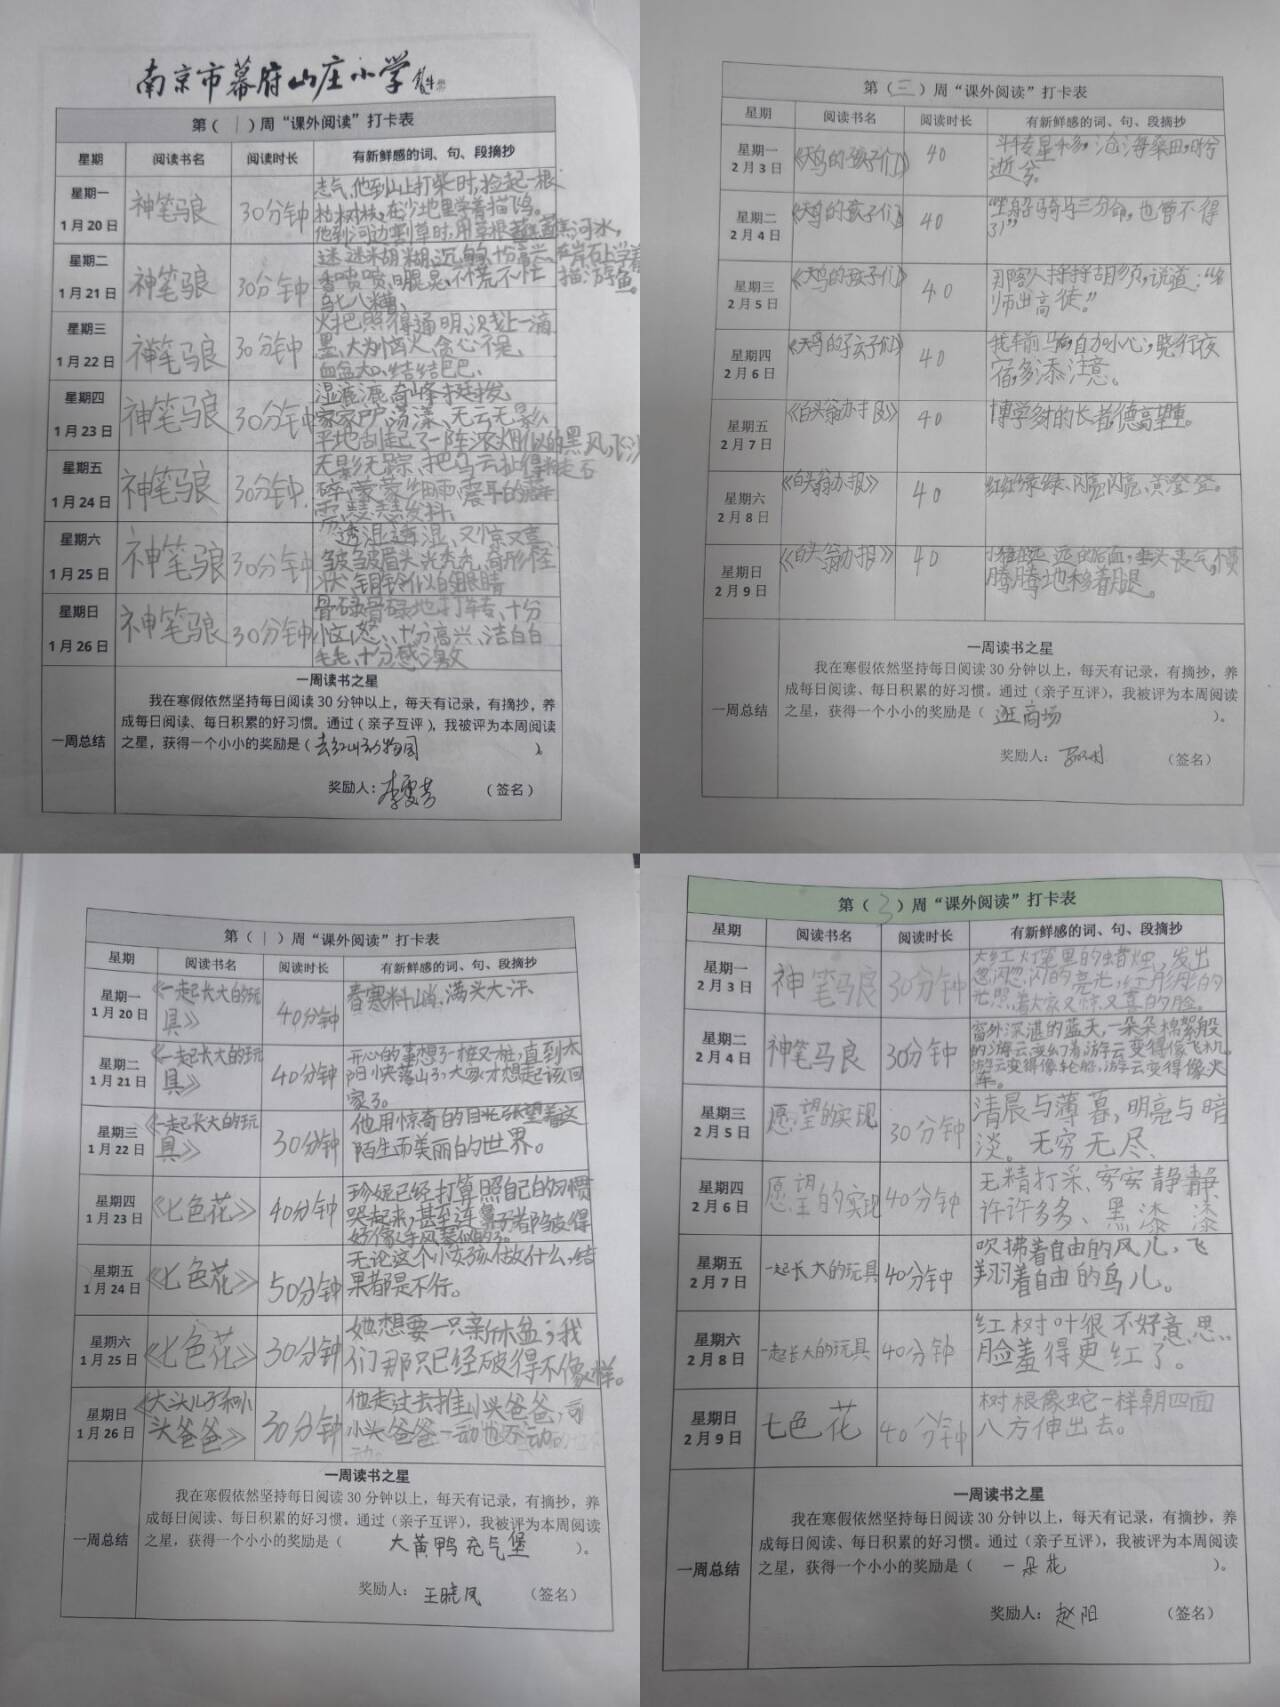 南京市幕府山庄小学
第（1）周“课外阅读”打卡表
星期 阅读书名 阅读时长 有新鲜感的词、句、段摘抄
星期一
1月20日
神笔马良 30分钟
志气,他到山上打柴时,捡起一根
枯树枝,在沙地里学着描飞鸟。
他到河边割草时,用草根蘸蘸河水,
在岸石上学着
描游鱼。
星期二
1月21日
神笔马良 30分钟
迷迷糊糊、沉甸甸、十分高兴、
香喷喷、明晃晃、不慌不忙
乱七八糟、
星期三
1月22日
神笔马良 30分钟
火把照得通明、浅上一滴
墨、大为恼火、贪心不足、
血盆大口、结结巴巴、
星期四
1月23日
神笔马良 30分钟
湿漉漉、奇峰挺拔、
家家户户、荡漾、无云无影、
平地刮起了一阵浓烟似的黑风,飞沙
走石
星期五
1月24日
神笔马良 30分钟
无影无踪、把乌云扯得粉
碎、蒙蒙细雨、震耳的
星期六
1月25日
神笔马良 30分钟
透湿透湿、又惊又喜、
皱皱眉头、光秃秃、奇形怪
状、铜铃似的眼睛
星期日
1月26日
神笔马良 30分钟
骨碌骨碌地打转、十分
十分高兴、洁白白
毛毛、十分感激
一周总结
一周读书之星
我在寒假依然坚持每日阅读30分钟以上，每天有记录，有摘抄，养
成每日阅读、每日积累的好习惯。通过（亲子互评），我被评为本周阅读
之星，获得一个小小的奖励是（去红山动物园）。
奖励人：李雯芳（签名）
第（三）周“课外阅读”打卡表
星期 阅读书名 阅读时长 有新鲜感的词、句、段摘抄
星期一
2月3日
《大鸟的孩子们》 40
斗转星移,沧海桑田,时兮
逝兮。
星期二
2月4日
《大鸟的孩子们》 40
“坐船骑马三分命,也管不得
了!”
星期三
2月5日
《大鸟的孩子们》 40
那客人捋捋胡须,说道:“名
师出高徒。”
星期四
2月6日
《大鸟的孩子们》 40
我车前马后自加小心,晓行夜
宿,多添注意。
星期五
2月7日
《白头翁办报》 40
博学多才的长者,德高望重。
星期六
2月8日
《白头翁办报》 40
红红绿绿、闪亮闪亮、黄澄澄。
星期日
2月9日
《白头翁办报》 40
远远的后面,垂头丧气,慢
腾腾地移着腿。
一周总结
一周读书之星
我在寒假依然坚持每日阅读30分钟以上，每天有记录，有摘抄，养
成每日阅读、每日积累的好习惯。通过（亲子互评），我被评为本周阅读
之星，获得一个小小的奖励是（逛商场）。
奖励人：（签名）
第（1）周“课外阅读”打卡表
星期 阅读书名 阅读时长 有新鲜感的词、句、段摘抄
星期一
1月20日
《一起长大的玩
具》
40分钟
春寒料峭、满头大汗、
星期二
1月21日
《一起长大的玩
具》
40分钟
开心的事想了一桩又一桩,直到太
阳快落山了,大家才想起该回
家了。
星期三
1月22日
《一起长大的玩
具》
30分钟
他用惊奇的目光张望着这
陌生而美丽的世界。
星期四
1月23日
《七色花》 40分钟
珍妮已经打算照自己的习惯
哭起来,甚至连鼻子都皱得
好像手风琴似的了。
星期五
1月24日
《七色花》 50分钟
无论这个小女孩做什么,结
果都是不行。
星期六
1月25日
《七色花》 30分钟
她想要一只新木盆;我
们那只已经破得不像样。
星期日
1月26日
《大头儿子和小
头爸爸》
30分钟
他走过去推小头爸爸,可
小头爸爸一动也不动。
一周总结
一周读书之星
我在寒假依然坚持每日阅读30分钟以上，每天有记录，有摘抄，养
成每日阅读、每日积累的好习惯。通过（亲子互评），我被评为本周阅读
之星，获得一个小小的奖励是（大黄鸭充气堡）。
奖励人：王晓凤（签名）
第（3）周“课外阅读”打卡表
星期 阅读书名 阅读时长 有新鲜感的词、句、段摘抄
星期一
2月3日
神笔马良 30分钟
大红灯笼里的蜡烛,发出
忽闪忽闪的亮光,红彤彤的
光照着大家又惊又喜的脸。
星期二
2月4日
神笔马良 30分钟
窗外深湛的蓝天,一朵朵棉絮般
的游云变幻着,游云变得像飞机,
游云变得像轮船,游云变得像火
车。
星期三
2月5日
愿望的实现 30分钟
清晨与薄暮,明亮与暗
淡。无穷无尽、
星期四
2月6日
愿望的实现 40分钟
无精打采、安安静静
许许多多、黑漆漆
星期五
2月7日
一起长大的玩具 40分钟
吹拂着自由的风儿,飞
翔着自由的鸟儿。
星期六
2月8日
一起长大的玩具 40分钟
红树叶很不好意思,
脸羞得更红了。
星期日
2月9日
七色花 40分钟
树根像蛇一样朝四面
八方伸出去。
一周总结
一周读书之星
我在寒假依然坚持每日阅读30分钟以上，每天有记录，有摘抄，养
成每日阅读、每日积累的好习惯。通过（亲子互评），我被评为本周阅读
之星，获得一个小小的奖励是（一朵花）。
奖励人：赵阳（签名）